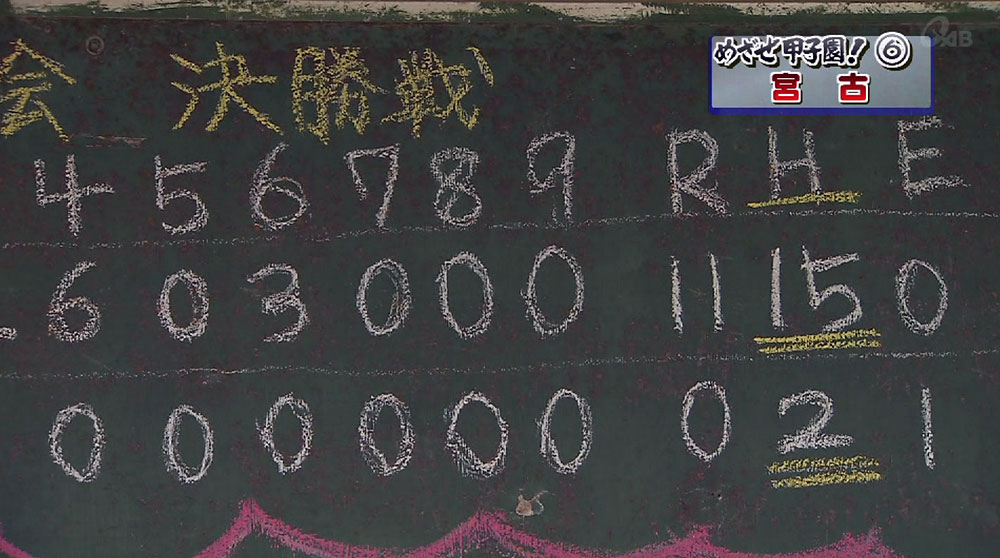 めざせ甲子園！⑥
宮古
会 決勝戦
4 5 6 7 8 9 R H E
6 0 3 0 0 0 11 15 0
0 0 0 0 0 0 0 2 1